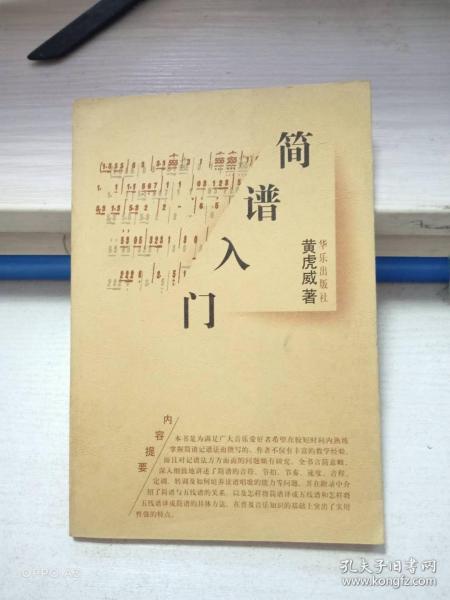 简谱入门
黄虎威著
华乐出版社
内容提要
本书是为满足广大音乐爱好者希望在较短时间内熟练
掌握简谱记谱法而撰写的。作者不仅有丰富的教学经验,
而且对记谱法方方面面的问题颇有研究。全书言简意赅,
深入细致地讲述了简谱的音符、节拍、节奏、速度、音程、
定调、转调及如何培养读谱唱歌的能力等问题,并在附录中介
绍了简谱与五线谱的关系,以及怎样将简谱译成五线谱和怎样将
五线谱译成简谱的具体方法。在普及音乐知识的基础上突出了实用
性强的特点。
OPPO A7
孔夫子旧书网
www.kongfz.com